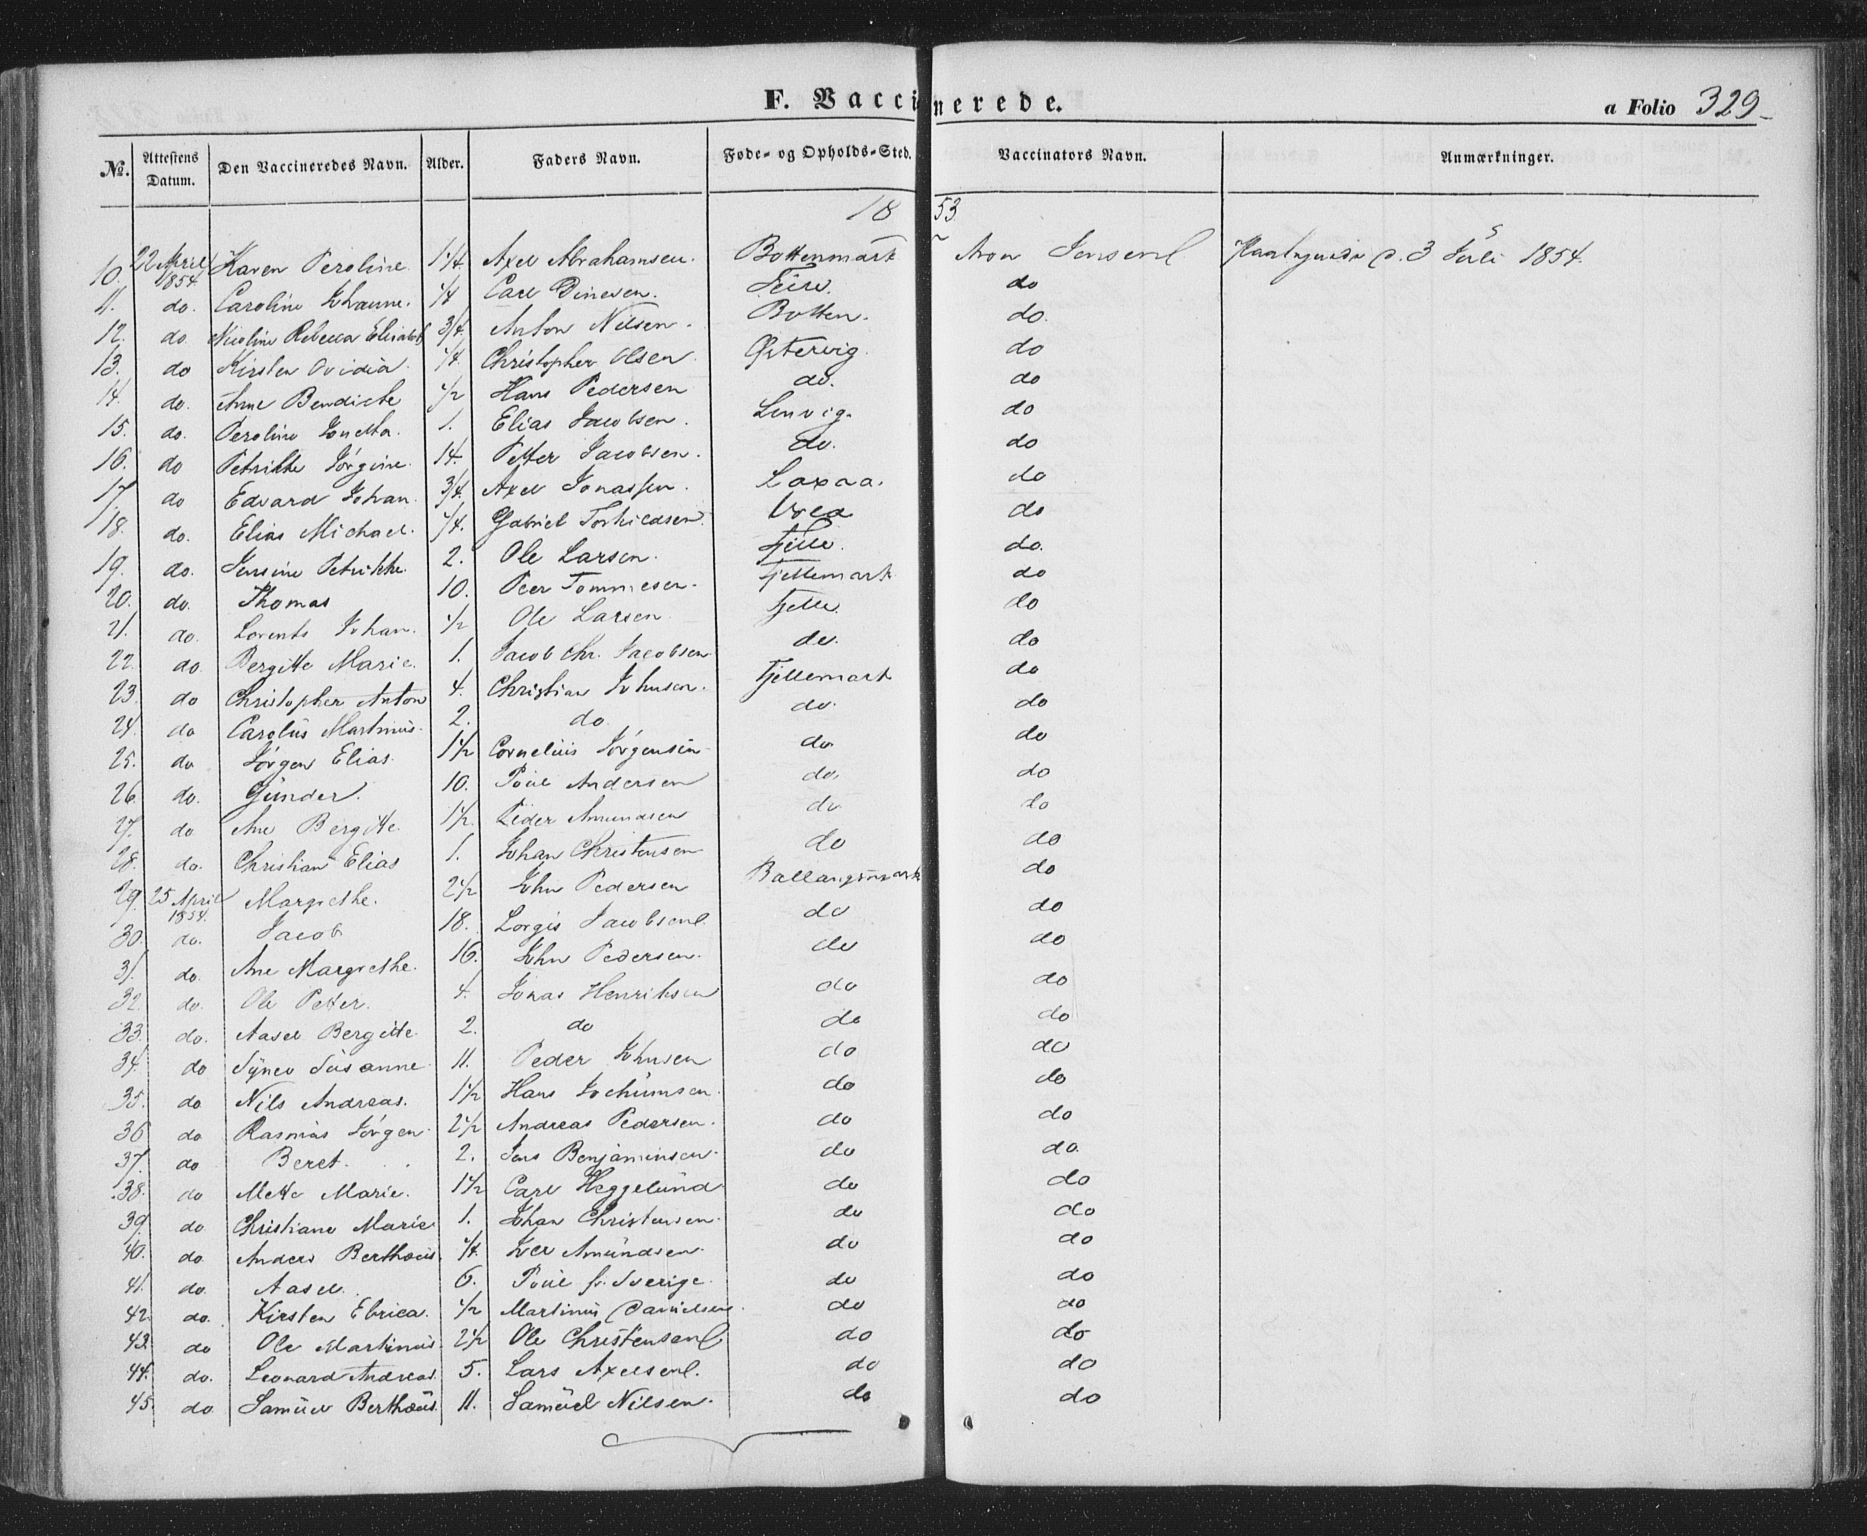 F. Vaccinerede.
a Folio 329
No. Attestens Datum. Den Vaccineredes Navn. Alder. Faders Navn. Føde- og Opholds-Sted. Vaccinators Navn. Anmærkninger.
1853
10. 22 April 1854. Karen Peroline 1/4 Axel Abrahamsen. Bottenmark Aron Jensen d. 3 Juli 1854.
11. do. Caroline Johanne. 1/4 Carl Dinesen. do
12. do. Nicoline Rebecca Elisabeth 3/4 Anton Nilsen. Botten. do.
13. do Kirsten Ovidia 1/4. Christopher Olsen Østervig. do
14. do. Anne Bendicte 1/2 Hans Pedersen do. do
15. do. Peroline 1. Elias Jacobsen. Lenvig. do
16. do Petrikke Jørgine. 14. Petter Jacobsen. do. do
17. do Edvard Johan. 3/4. Axel Jonassen. Laxaa. do
18. do. Elias Michael. 1/4. Gabriel Torkildsen. do
19. do. Jensine Petrikke. 2. Ole Larsen. Fjelle. do.
20. do. Thomas 10. Peer Tommesen. Fjellemark do
21. do. Lorents Johan. 1/2 Ole Larsen Fjelle. do
22. do Bergitte Marie. 1. Jacob Chr. Jacobsen do. do
23. do Christopher Anton 4. Christian Johnsen. Fjellemark do
24. do Carolus Martinus. 2. do do. do
25. do Jørgen Elias. 1 1/2 Cornelius Jørgensen do do
26. do. Gunder. 10. Poul Andersen do. do
27. do Ane Bergitte. 1 1/2 Peder Amundsen do do
28. do. Christian Elias 1. Johan Christensen do do
29. 25 April 1854. Margrethe. 2 1/2 John Pedersen Ballangsmark do
30. do. Jacob 18. Jacobsen. do do
31. do. Ane Margrethe. 16. John Pedersen. do do
32. do. Ole Petter. 4. Jonas Henriksen do do
33. do. Aasel Bergitte 2. do do do
34. do Susanne 11. Peder Johnsen do do
35. do Nils Andreas. 1 1/2 Hans Jochumsen. do do
36 do Rasmus Jørgen 2 1/2 Andreas Pedersen. do do
37. do Beret. 2. Jens Benjaminsen. do do.
38. do Mette Marie. 1 1/2 Carl Heggelund do do
39. do Christiane Marie 1. Johan Christensen. do do
40. do. Anders Berthæus. 1/4. Iver Amundsen. do do
41. do. Aasel. 6. Poul fr. Sverige. do do
42. do. Kirsten Ebrica. 1/2 Martinus Danielsen. do do
43. do Ole Martinus. 2 1/2 Ole Christensen do do
44. do. Leonard Andreas. 5. Lars Axelsen. do do
45. do Samuel Berthæus. 11. Samuel Nilsen. do do